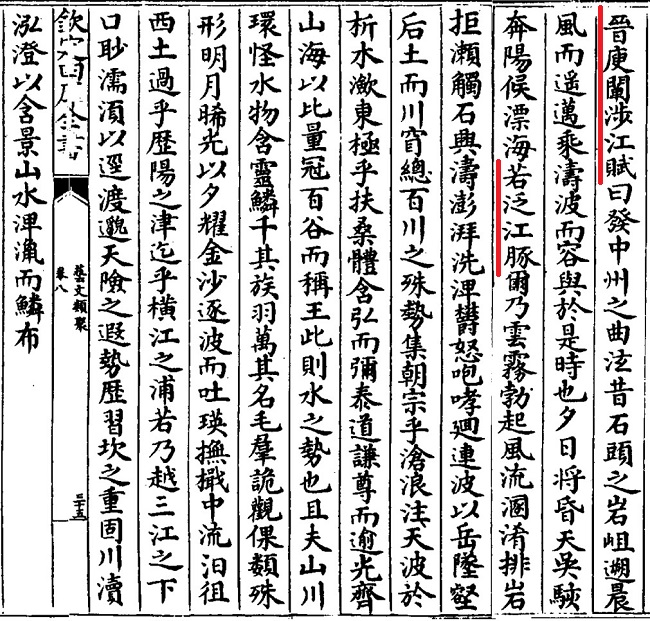 晉庾闡涉江賦曰發中州之曲泫昔石頭之岩岨遡晨
風而遥邁乘濤波而容與於是時也夕日將昏天吳駭
奔陽候漂海若泛江豚爾乃雲霧勃起風流溷淆排岩
拒瀨觸石興濤澎湃洗渒欝怒咆哮廻連波以岳墜壑
后土而川窅總百川之殊勢集朝宗乎滄浪注天波於
析水瀲東極乎扶桑體含弘而彌泰道謙尊而逾光齊
山海以比量冠百谷而稱王此則水之勢也且夫山川
環怪水物含靈鱗千其族羽萬其名毛羣詭觀倮纇殊
形明月晞光以夕耀金沙逐波而吐瑛撫檝中流汨徂
西土過乎歷陽之津迄乎橫江之浦若乃越三江之下
口眇濡湏以逕渡邈天險之遐勢歷習坎之重固川瀆
欽定四庫全書
藝文類聚
卷八
三十五
泓澄以含景山水渒瀷而鱗布